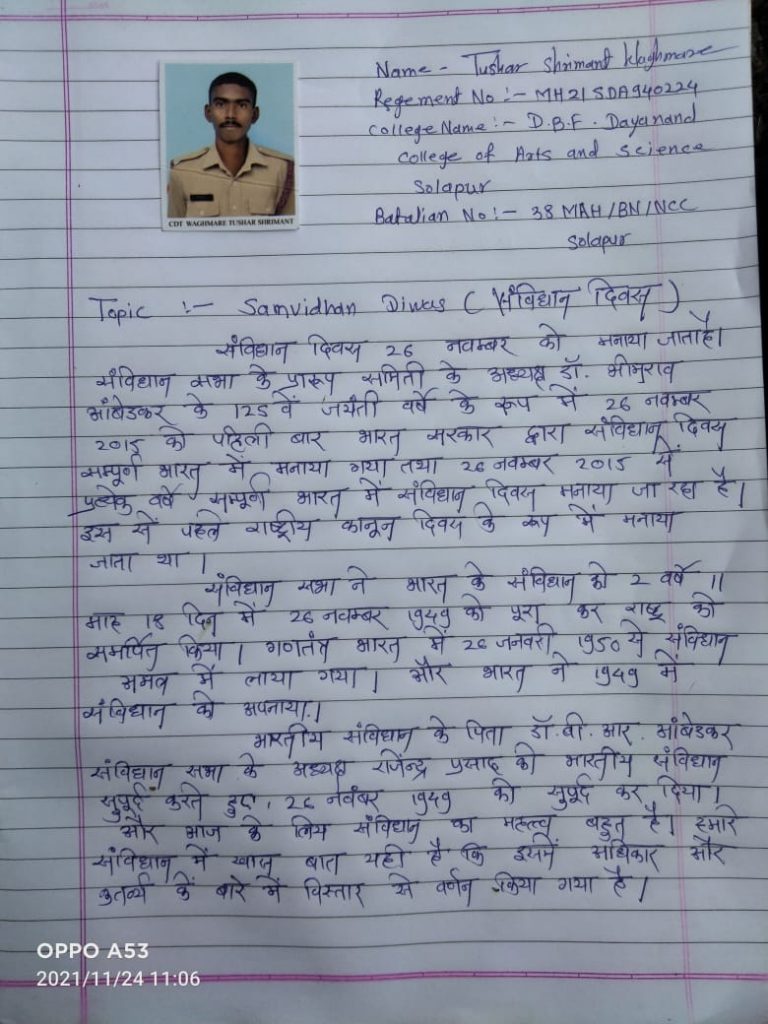 Name - Tushar Shrimant Waghmare
Regement No :- MH21SDA940224
College Name :- D.B.F. Dayanand
College of Arts and Science
Solapur
Batalian No :- 38 MAH/BN/NCC
Solapur
CDT WAGHMARE TUSHAR SHRIMANT
Topic :- Samvidhan Diwas (संविधान दिवस)
संविधान दिवस 26 नवम्बर को मनाया जाताहै।
संविधान सभा के प्रारूप समिती के अध्यक्ष डॉ. भीमराव
आंबेडकर के 125 वें जयंती वर्षे के रूप में 26 नवम्बर
2015 को पहिली बार भारत सरकार द्वारा संविधान दिवस
सम्पूर्ण भारत में मनाया गया तथा 26 नवम्बर 2015 सें
प्रत्येक वर्षे सम्पूर्ण भारत में संविधान दिवस मनाया जा रहा है।
इस सें पहले राष्ट्रीय कानून दिवस के रूप में मनाया
जाता था।
संविधान सभा ने भारत के संविधान को 2 वर्षे 11
माह 18 दिन में 26 नवम्बर 1949 को पूरा कर राष्ट्र को
समर्पित किया। गणतंत्र भारत में 26 जनवरी 1950 से संविधान
अमल में लाया गया। और भारत ने 1949 में
संविधान को अपनाया।
भारतीय संविधान के पिता डॉ. बी. आर. आंबेडकर
संविधान सभा के अध्यक्ष राजेंन्द्र प्रसाद को भारतीय संविधान
सुपूर्द करते हुए, 26 नवंबर 1949 को सुपूर्द कर दिया।
और आज के लिय संविधान का महत्त्व बहुत है। हमारे
संविधान में खास बात यही है कि इसमें अधिकार और
कर्तव्य कें बारे में विस्तार से वर्णन किया गया है।
OPPO A53
2021/11/24 11:06